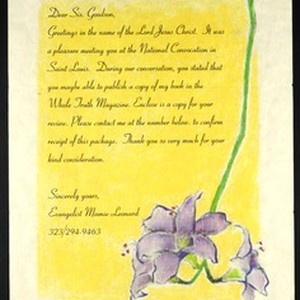 Dear Sis. Goodson,
Greetings in the name of the Lord Jesus Christ. It was
a pleasure meeting you at the National Convocation in
Saint Louis. During our conversation, you stated that
you maybe able to publish a copy of my book in the
Whole Truth Magazine. Enclose is a copy for your
review. Please contact me at the number below, to confirm
receipt of this package. Thank you so very much for your
kind consideration.
Sincerely yours,
Evangelist Mamie Leonard
323/294-9463